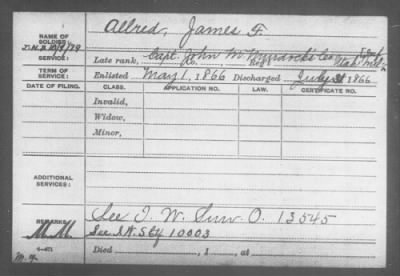 NAME OF SOLDIER: Allred, James F.
SERVICE: Late rank, Capt. John M. Murdock's Co. Utah Mil.
TERM OF SERVICE: Enlisted May 1, 1866 Discharged July 31 1866
DATE OF FILING. CLASS. APPLICATION NO. LAW. CERTIFICATE NO.
Invalid,
Widow,
Minor,
ADDITIONAL SERVICES:
REMARKS: See I. W. Surv. O. 13545
See I.W. 10003
Died , 1 , at